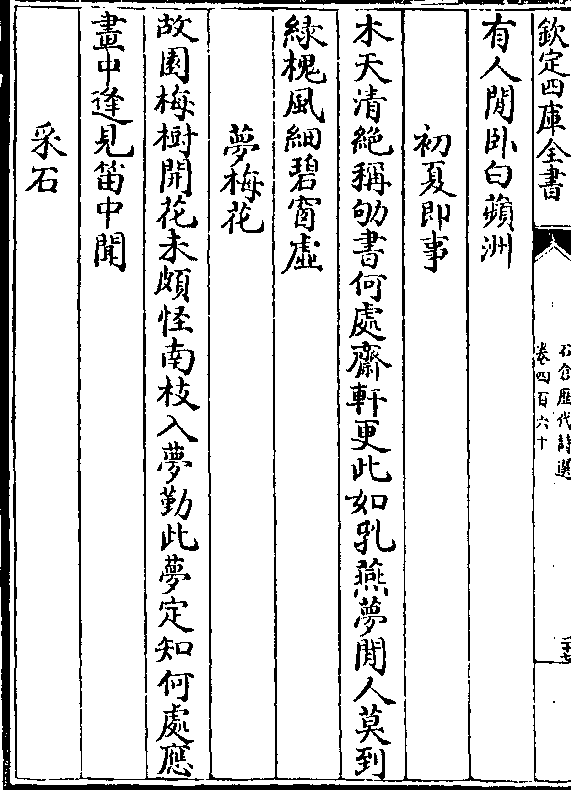 欽定四庫全書
石倉歷代詩選
卷四百六十
有人閒臥白蘋洲
初夏即事
木天清絶稱劬書何處齋軒更此如乳燕夢閒人莫到
緑槐風細碧窗虛
夢梅花
故園梅樹開花未頗怪南枝入夢勤此夢定知何處應
畫中逢見笛中聞
采石